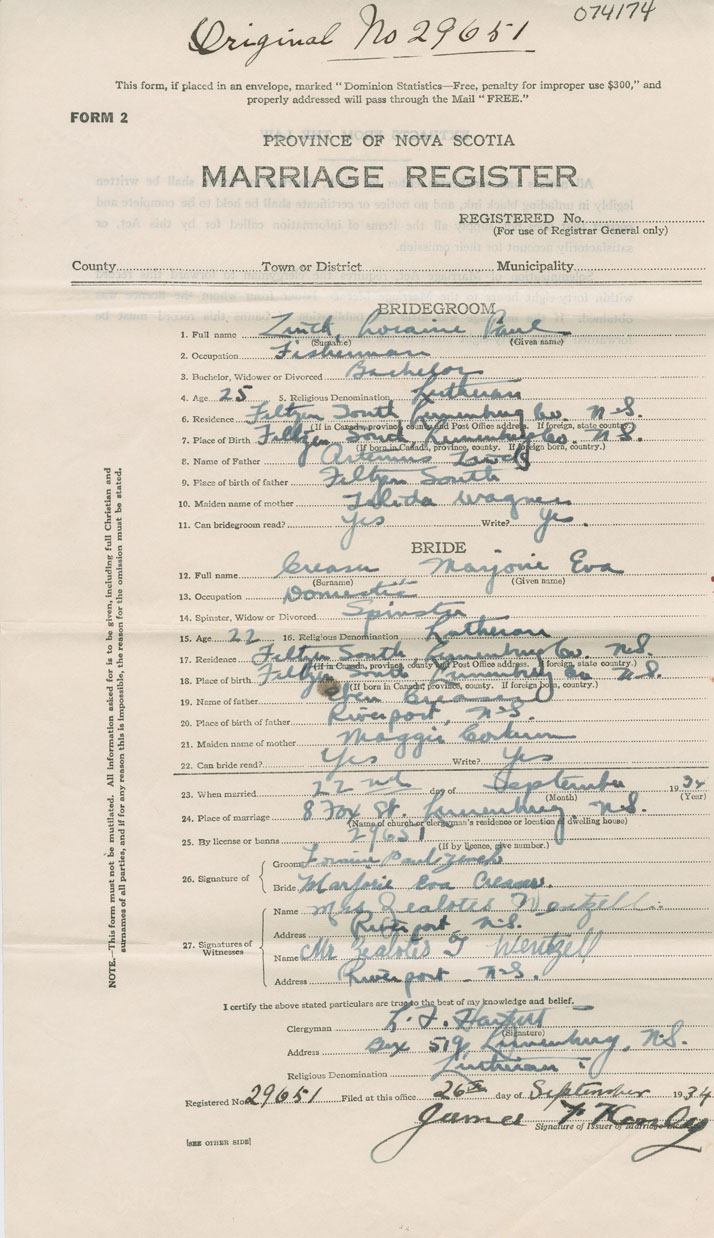 074174
Original No 29651
This form, if placed in an envelope, marked "Dominion Statistics—Free, penalty for improper use $300," and
properly addressed will pass through the Mail "FREE."
FORM 2
PROVINCE OF NOVA SCOTIA
MARRIAGE REGISTER
REGISTERED No.
(For use of Registrar General only)
County Town or District Municipality
BRIDEGROOM
1. Full name Zinck, Loraine Paul
(Surname) (Given name)
2. Occupation Fisherman
3. Bachelor, Widower or Divorced Bachelor
4. Age 25 5. Religious Denomination Lutheran
6. Residence Feltzen South Lunenburg Co. N-S.
(If in Canada, province, county and Post Office address. If foreign, state country.)
7. Place of Birth Feltzen South, Lunenburg Co. N-S.
(If born in Canada, province, county. If foreign born, country.)
8. Name of Father Artemus
9. Place of birth of father Feltzen South
10. Maiden name of mother Wagner
11. Can bridegroom read? Yes Write? Yes.
BRIDE
12. Full name Creaser Marjorie Eva
(Surname) (Given name)
13. Occupation Domestic
14. Spinster, Widow or Divorced Spinster
15. Age 22 16. Religious Denomination Lutheran
17. Residence Feltzen South, Lunenburg Co. N.S.
(If in Canada, province, county and Post Office address. If foreign, state country.)
18. Place of birth Feltzen South Lunenburg Co N.S.
(If born in Canada, province, county. If foreign born, country.)
19. Name of father Creaser
20. Place of birth of father Riverport, N-S.
21. Maiden name of mother Maggie Corkum
22. Can bride read? Yes Write? Yes
23. When married 22nd day of September 1934
(Month) (Year)
24. Place of marriage 8 Fox St. Lunenburg, N-S.
(Name of church or clergyman's residence or location of dwelling house)
25. By license or banns 29651
(If by licence, give number.)
26. Signature of Groom Loraine Paul Zinck
Bride Marjorie Eva Creaser.
27. Signatures of Witnesses
Name Mrs Zealotes Wentzell
Address Riverport N.S.
Name Mr Zealotes J Wentzell
Address Riverport - N-S.
I certify the above stated particulars are true to the best of my knowledge and belief.
Clergyman
(Signature)
Address Box 579 Lunenburg, N.S.
Religious Denomination Lutheran
Registered No. 29651 Filed at this office 26th day of September 1934
James
Signature of Issuer of Marriage
[SEE OTHER SIDE]
NOTE.—This form must not be mutilated. All information asked for is to be given, including full Christian and
surnames of all parties, and if for any reason this is impossible, the reason for the omission must be stated.